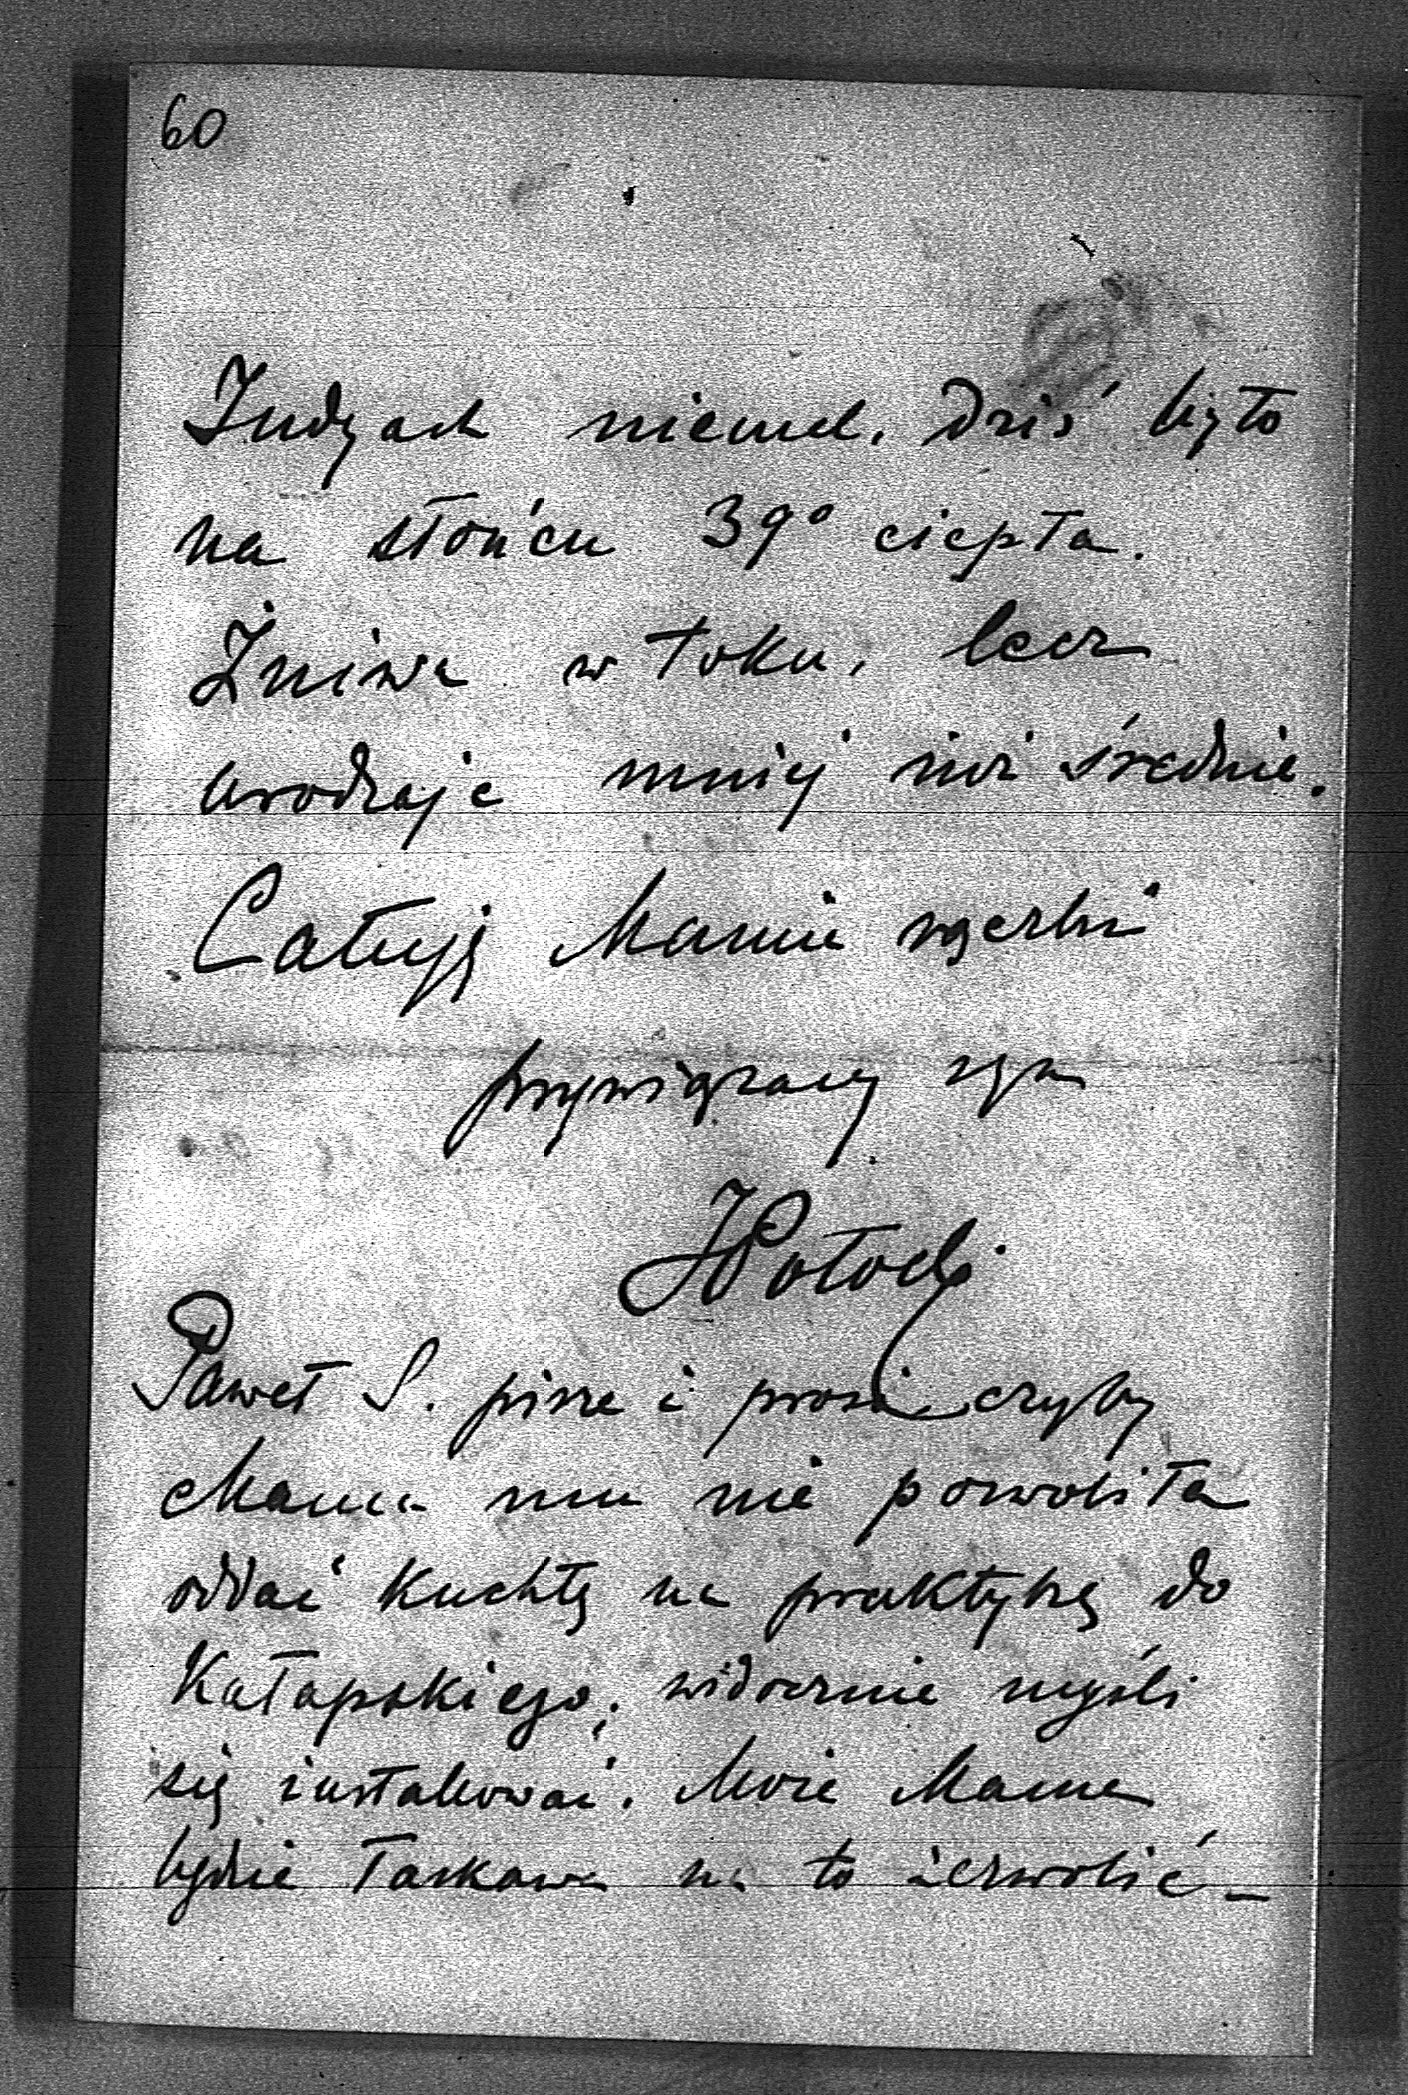 60
Indyach niemal. Dziś było
na słońcu 39° ciepła.
Żniwa w toku, lecz
urodzaje mniej niż średnie.
Całuję Mamie rączki
przywiązany syn
JPotocki
Paweł S. pisze i prosi czyby
Mama mu nie pozwoliła
oddać kuchtę na praktykę do
Kałapskiego; widocznie myśli
się instalować. Może Mama
będzie łaskawa na to zezwolić –